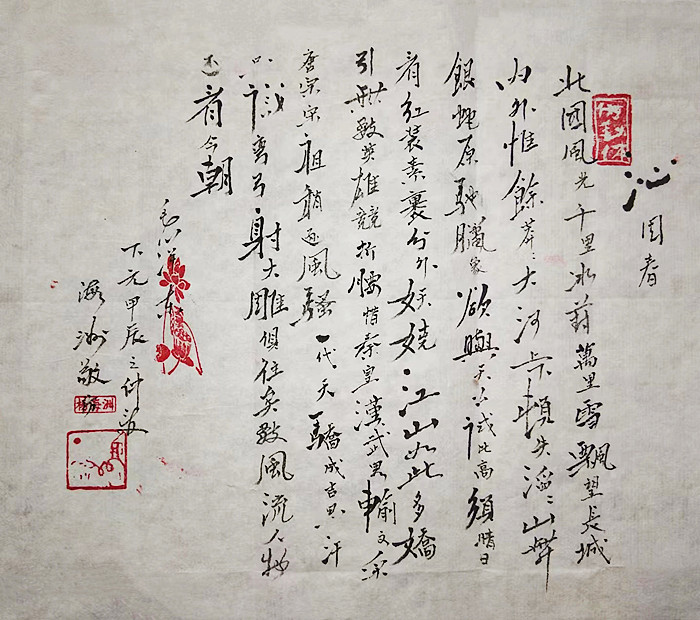 沁园春
北國風光千里冰封萬里雪飄望長城
内外惟餘莽〻大河上下頓失滔〻山舞
銀蛇原馳臘象欲與天公試比高須晴日
看紅装素裹分外妖娆江山如此多嬌
引無數英雄競折腰惜秦皇漢武畧輸文采
唐宗宋祖稍遜風騷一代天驕成吉思汗
只識彎弓射大雕俱往矣數風流人物
还看今朝
毛泽东
下元甲辰之仲
海洲敬